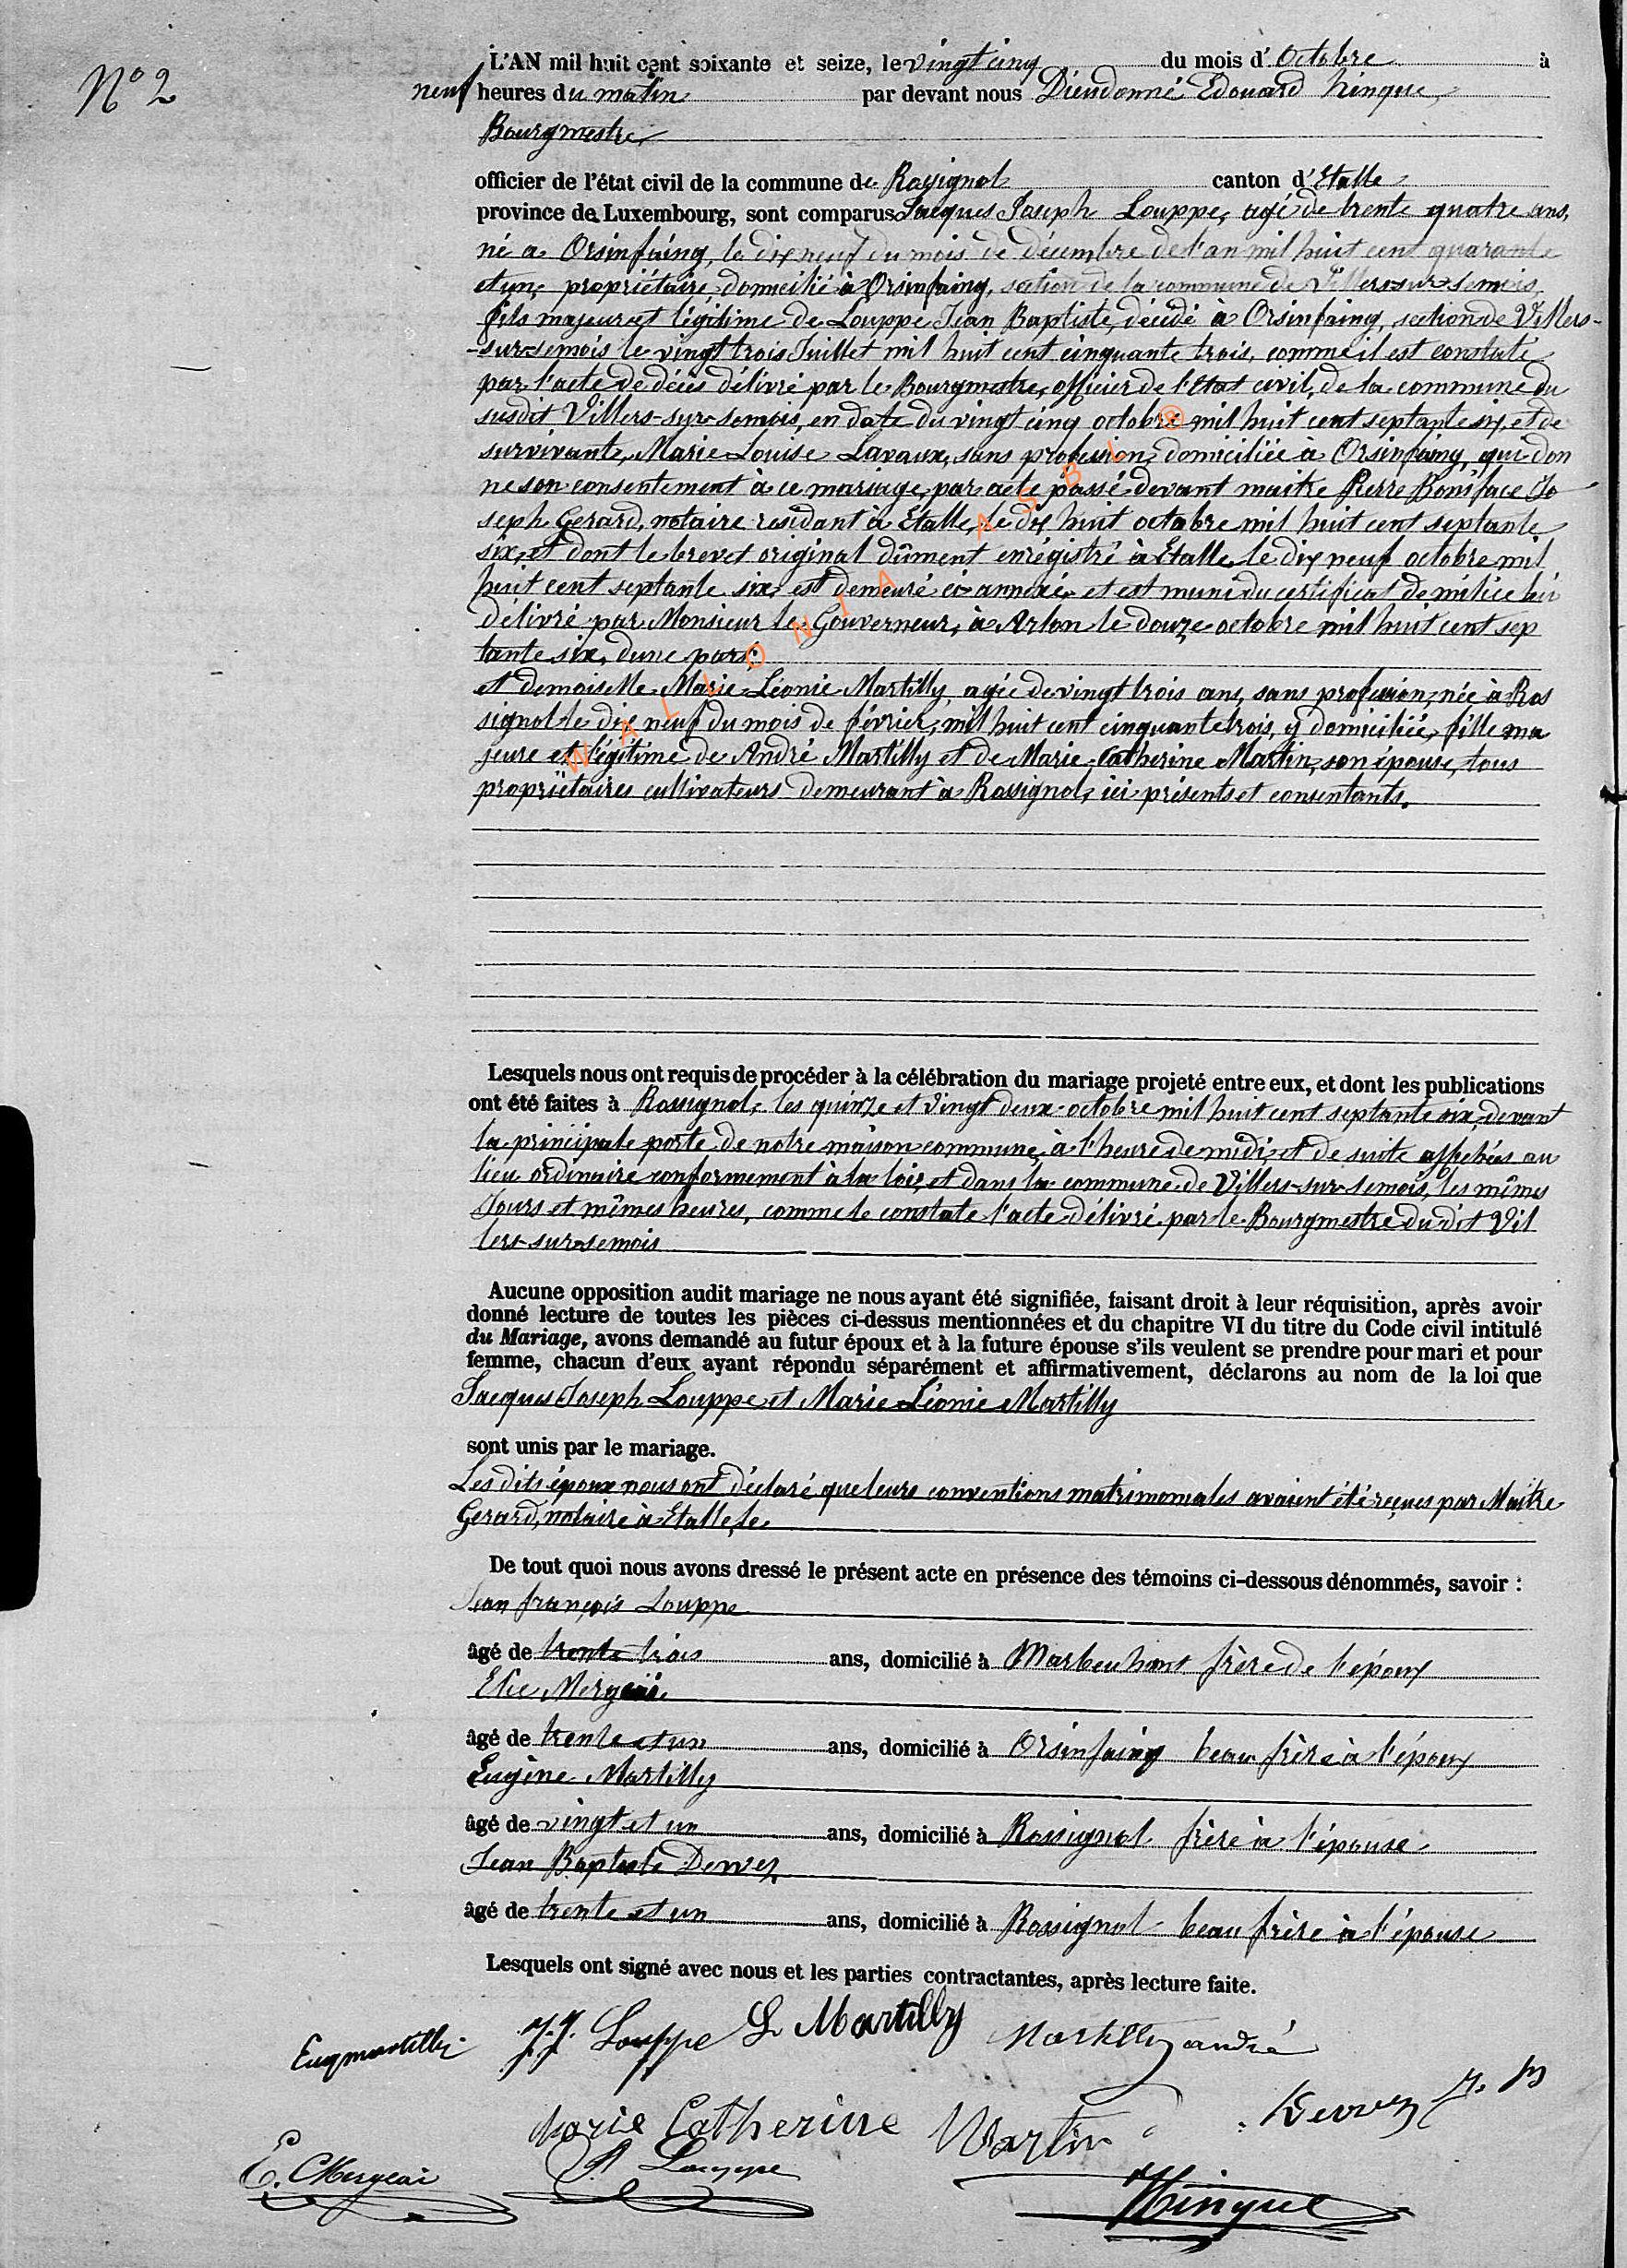 N° 2
L'AN mil huit cent soixante et seize, le vingt cinq du mois d'Octobre à
neuf heures du matin par devant nous Dieudonné Edouard Hinque,
Bourgmestre
officier de l'état civil de la commune de Rossignol canton d'Etalle
province de Luxembourg, sont comparus Jacques Joseph Louppe, agé de trente quatre ans,
né a Orsinfaing, le dix neuf du mois de décembre de l'an mil huit cent quarante
et un, propriétaire domicilié à Orsinfaing, section de la commune de Villers-sur-Semois,
fils majeur et légitime de Louppe Jean Baptiste, décédé à Orsinfaing, section de Villers-
-sur-semois le vingt trois Juillet mil huit cent cinquante trois, comme il est constaté
par l'acte de décès délivré par le Bourgmestre, officier de l'Etat civil, de la commune du
susdit Villers-sur-semois, en date du vingt cinq octobre mil huit cent septante six, et de
survivante, Marie Louise Lavaux, sans profession, domiciliée à Orsinfaing, qui don
ne son consentement à ce mariage, par acte passé devant maitre Pierre Boniface Jo
seph Gerard, notaire residant à Etalle, le dix huit octobre mil huit cent septante
six, et dont le brevet original dûment enrégistré à Etalle, le dix neuf octobre mil
huit cent septante six, est demeuré ci-annexé, et est muni du certificat de milice lui
délivré par Monsieur le Gouverneur, à Arlon le douze octobre mil huit cent sep
tante six, dune part;
et demoiselle Marie Léonie Martilly, agée de vingt trois ans, sans profession, née à Ros
signol le dix neuf du mois de février, mil huit cent cinquante trois, y domiciliée, fille ma
jeure et légitime de André Martilly et de Marie Catherine Martin, son épouse, tous
propriétaires cultivateurs demeurant à Rossignol, ici présents et consentants.
WALLONIA ASBL ®
Lesquels nous ont requis de procéder à la célébration du mariage projeté entre eux, et dont les publications
ont été faites à Rossignol, les quinze et vingt deux octobre mil huit cent septante six, devant
la principale porte de notre maison commune, à l'heure de midi, et de suite affichées au
lieu ordinaire conformement à la loi, et dans la commune de Villers-sur-semois, les mêmes
Jours et mêmes heures, comme le constate l'acte délivré par le Bourgmestre du dit Vil
lers-sur-semois
Aucune opposition audit mariage ne nous ayant été signifiée, faisant droit à leur réquisition, après avoir
donné lecture de toutes les pièces ci-dessus mentionnées et du chapitre VI du titre du Code civil intitulé
du Mariage, avons demandé au futur époux et à la future épouse s'ils veulent se prendre pour mari et pour
femme, chacun d'eux ayant répondu séparément et affirmativement, déclarons au nom de la loi que
Jacques Joseph Louppe et Marie Léonie Martilly
sont unis par le mariage.
Les dits époux nous ont déclaré que leurs conventions matrimoniales avaient été reçues par Maitre
Gerard, notaire à Etalle, le
De tout quoi nous avons dressé le présent acte en présence des témoins ci-dessous dénommés, savoir :
Jean françois Louppe
âgé de trente trois ans, domicilié à Marbeuhant frère de l'époux
Elie Mergeai
âgé de trente et un ans, domicilié à Orsinfaing beau frère à l'époux
Eugène Martilly
âgé de vingt et un ans, domicilié à Rossignol frère à l'épouse
Jean Baptiste Dervez
âgé de trente et un ans, domicilié à Rossignol beau frère à l'épouse
Lesquels ont signé avec nous et les parties contractantes, après lecture faite.
Eugmartilli J. J. Louppe L Martilly Martilly andré
Marie Catherine Martin Dervez J. B
E. Mergeai Louppe Hinque